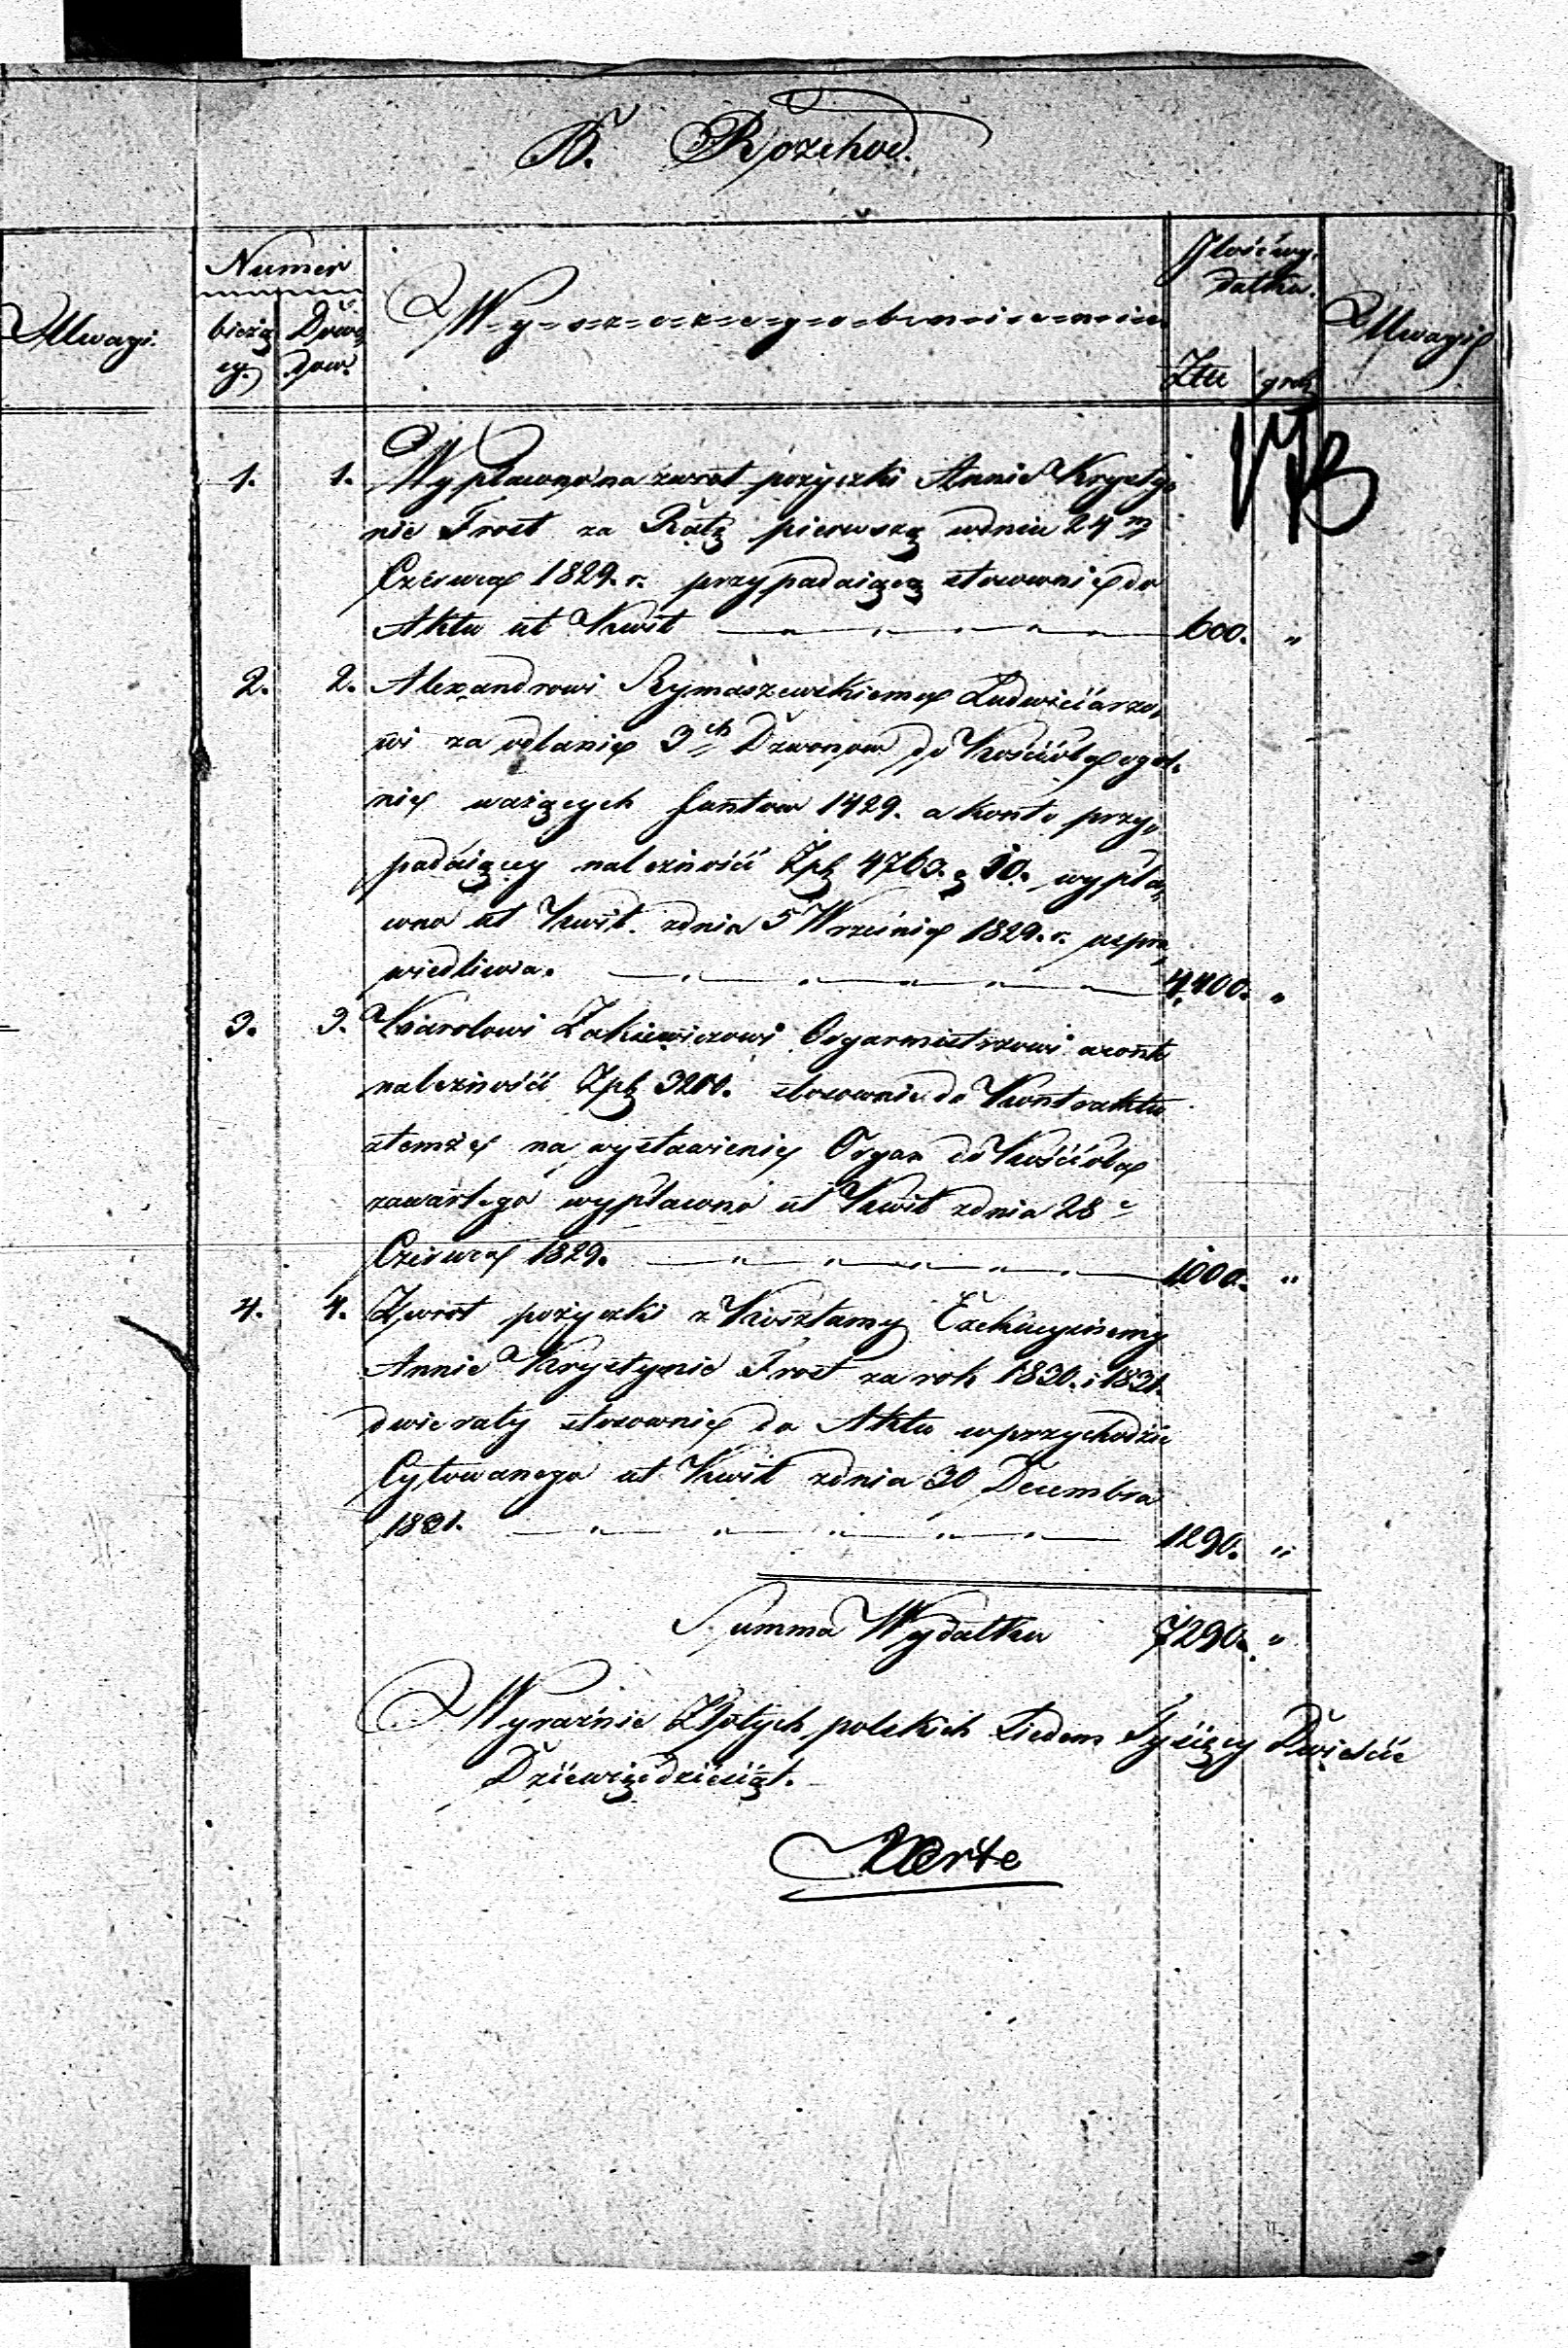 B. Rozchod.
Uwagi.
Numer
bieżą
cy.
Dowo
dow.
Wyszczegolnienie
Jlość wy
datku.
Złłł
grsz
Uwagi
1. 1. Wypłacono na zwrot pożyczki Annie Krysty,
nie Frost za Ratę pierwszą w dniu 24m
Czerwca 1829. r. przypadaiącą stosownie do
Aktu ut Kwit 600. "
2. 2. Alexandrowi Rymaszewskiemu Ludwisarzo,
wi za odlanie 3ch Dzwonow do Kościoła ogol,
nie ważących funtow 1429. a konto przy,
padaiącey należności Zpł 4763. g 10. wypła,
cono ut Kwit. z dnia 5 Wrześnie 1829. r. uspra,
wiedliwia. 4,400. "
3. 3. Karolowi Żakiewiczowi Organmistrzowi aconto
należności Zpł 3200. stosownie do Kontraktu
z temże na wystawienie Organ do Kościoła
zawartego wypłacono ut Kwit z dnia 28
Czerwca 1829. 1000. "
4. 4. Zwrot pożyczki z Kosztamy Exekucyinemy
Annie Krystynie Frost za rok 1830. i 1831.
dwie raty stosownie do Aktu w przychodzie
Cytowanego ut Kwit z dnia 30 Decembra
1831. 1290. "
Summa Wydatku 7290. "
Wyraźnie Złotych polskich Siedem Tysięcy Dwieście
Dziewięćdziesiąt.
Verte